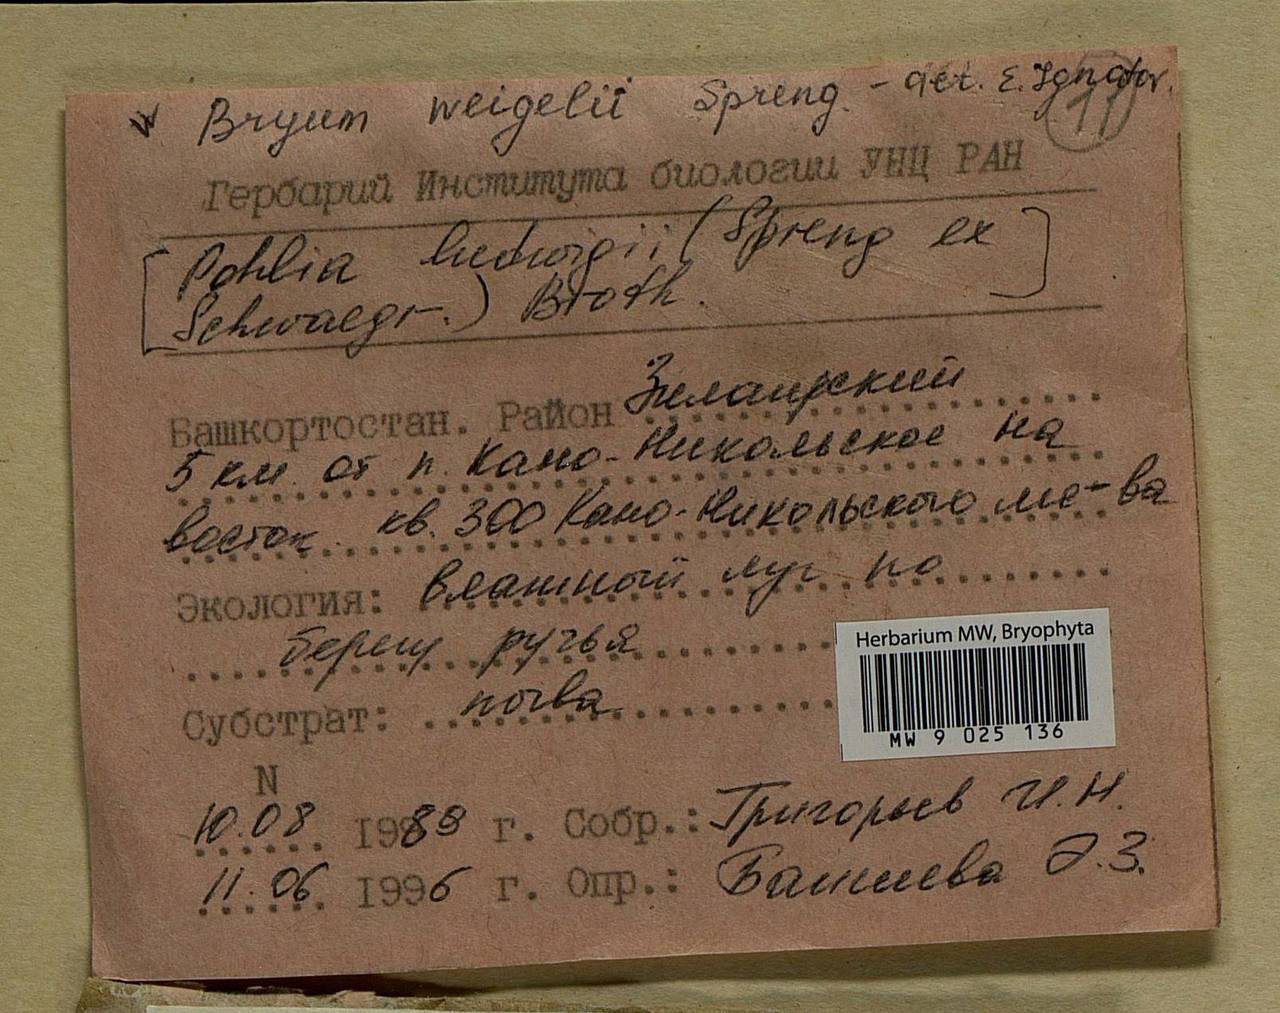 Bryum weigelii Spreng. - det. E. Ignatov.
11
Гербарий Института биологии УНЦ РАН
[Pohlia ludwigii (Spreng ex
Schwaegr.) Broth.]
Башкортостан. Район Зилаирский
5 км от п. Кано-Никольское на
восток. кв. 300 Кано-Никольского ле-ва
Экология: влажный луг по
берегу ручья
Субстрат: почва
Herbarium MW, Bryophyta
MW 9 025 136
N
10.08 1989 г. Собр.: Григорьев И.Н.
11.06 1996 г. Опр.: Баишева Э.З.